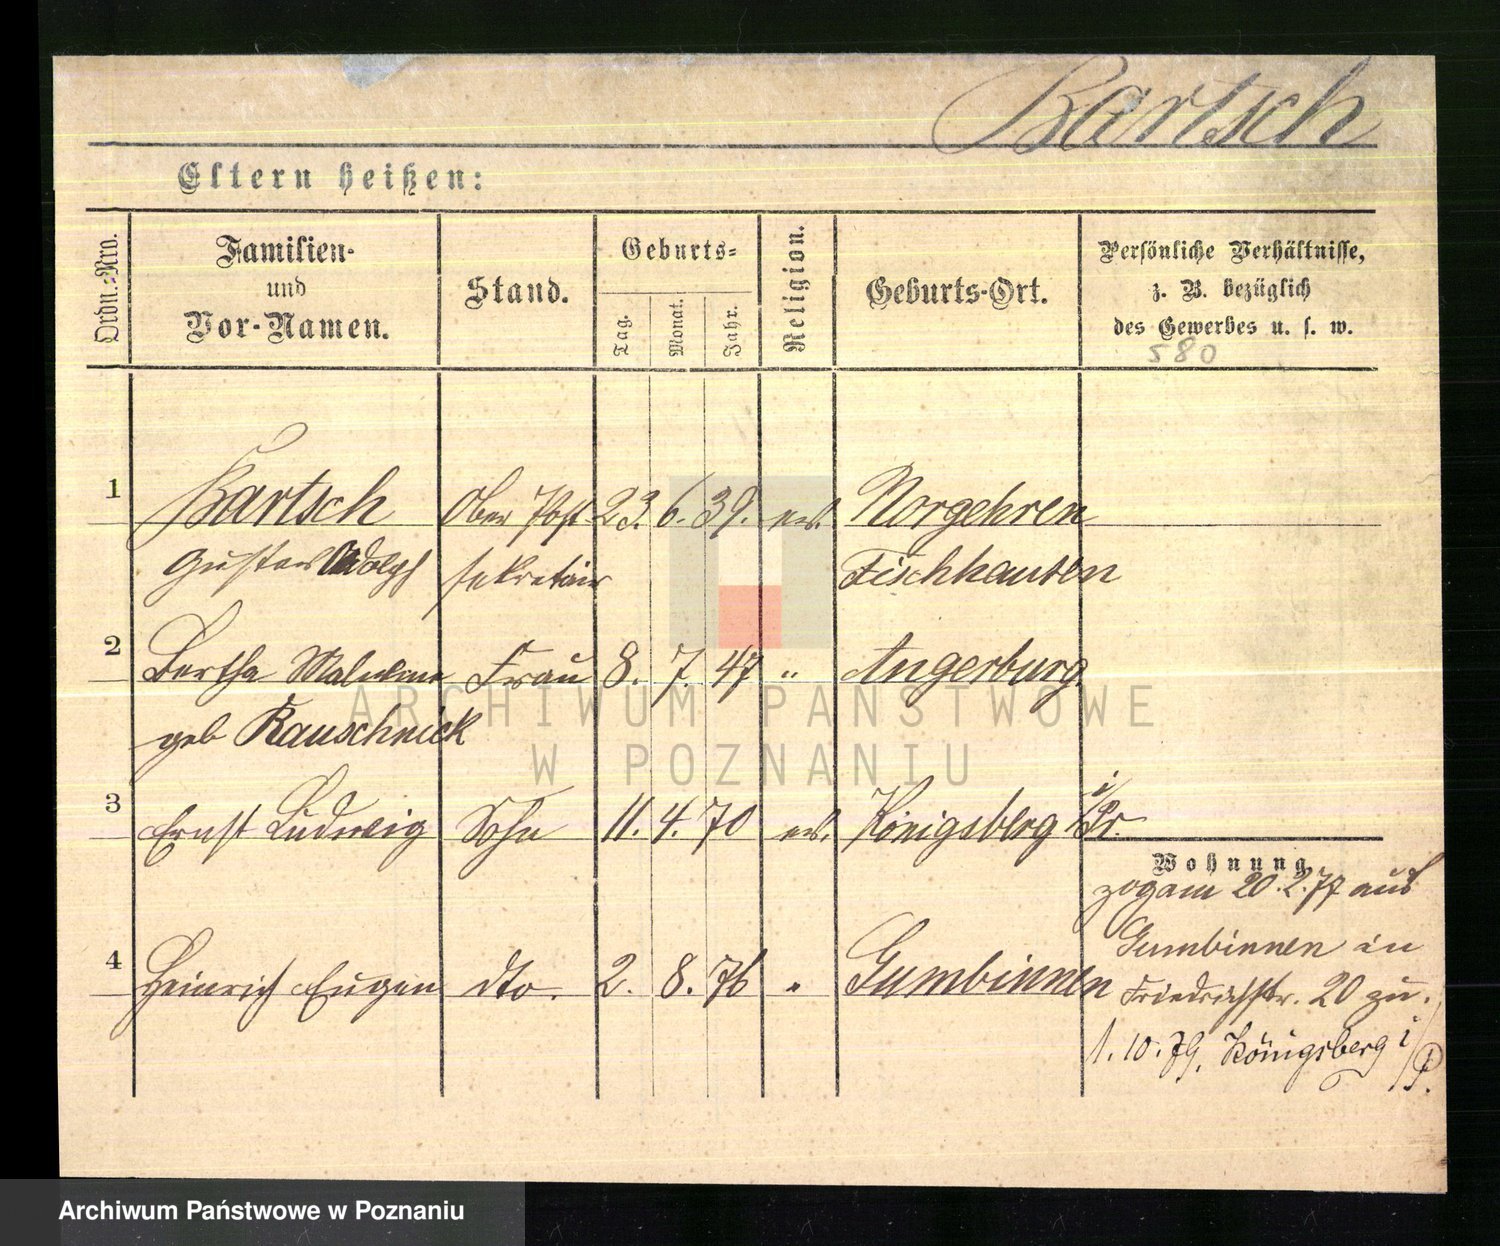 Bartsch
Eltern heißen:
Ordn.-Nro.
Familien-
und
Vor-Namen.
Stand.
Geburts-
Tag.
Monat.
Jahr.
Religion.
Geburts-Ort.
Persönliche Verhältnisse,
z. B. bezüglich
des Gewerbes u. s. w.
580
1 Bartsch Ober Post- 23. 6. 39. ev. Norgehren
Gustav Adolph sekretair Fischhausen
2 Bertha Malwine Frau 8. 7. 47 " Angerburg
geb Rauschnick
3 Ernst Ludwig Sohn 11. 4. 70 ev. Königsberg i/Pr.
Wohnung
zog am 20.2.77 aus
4 Heinrich Eugen dto. 2. 8. 76 " Gumbinnen
Gumbinnen in
Friedrichstr. 20 zu.
1.10.79. Königsberg i/P.
ARCHIWUM PAŃSTWOWE
W POZNANIU
Archiwum Państwowe w Poznaniu